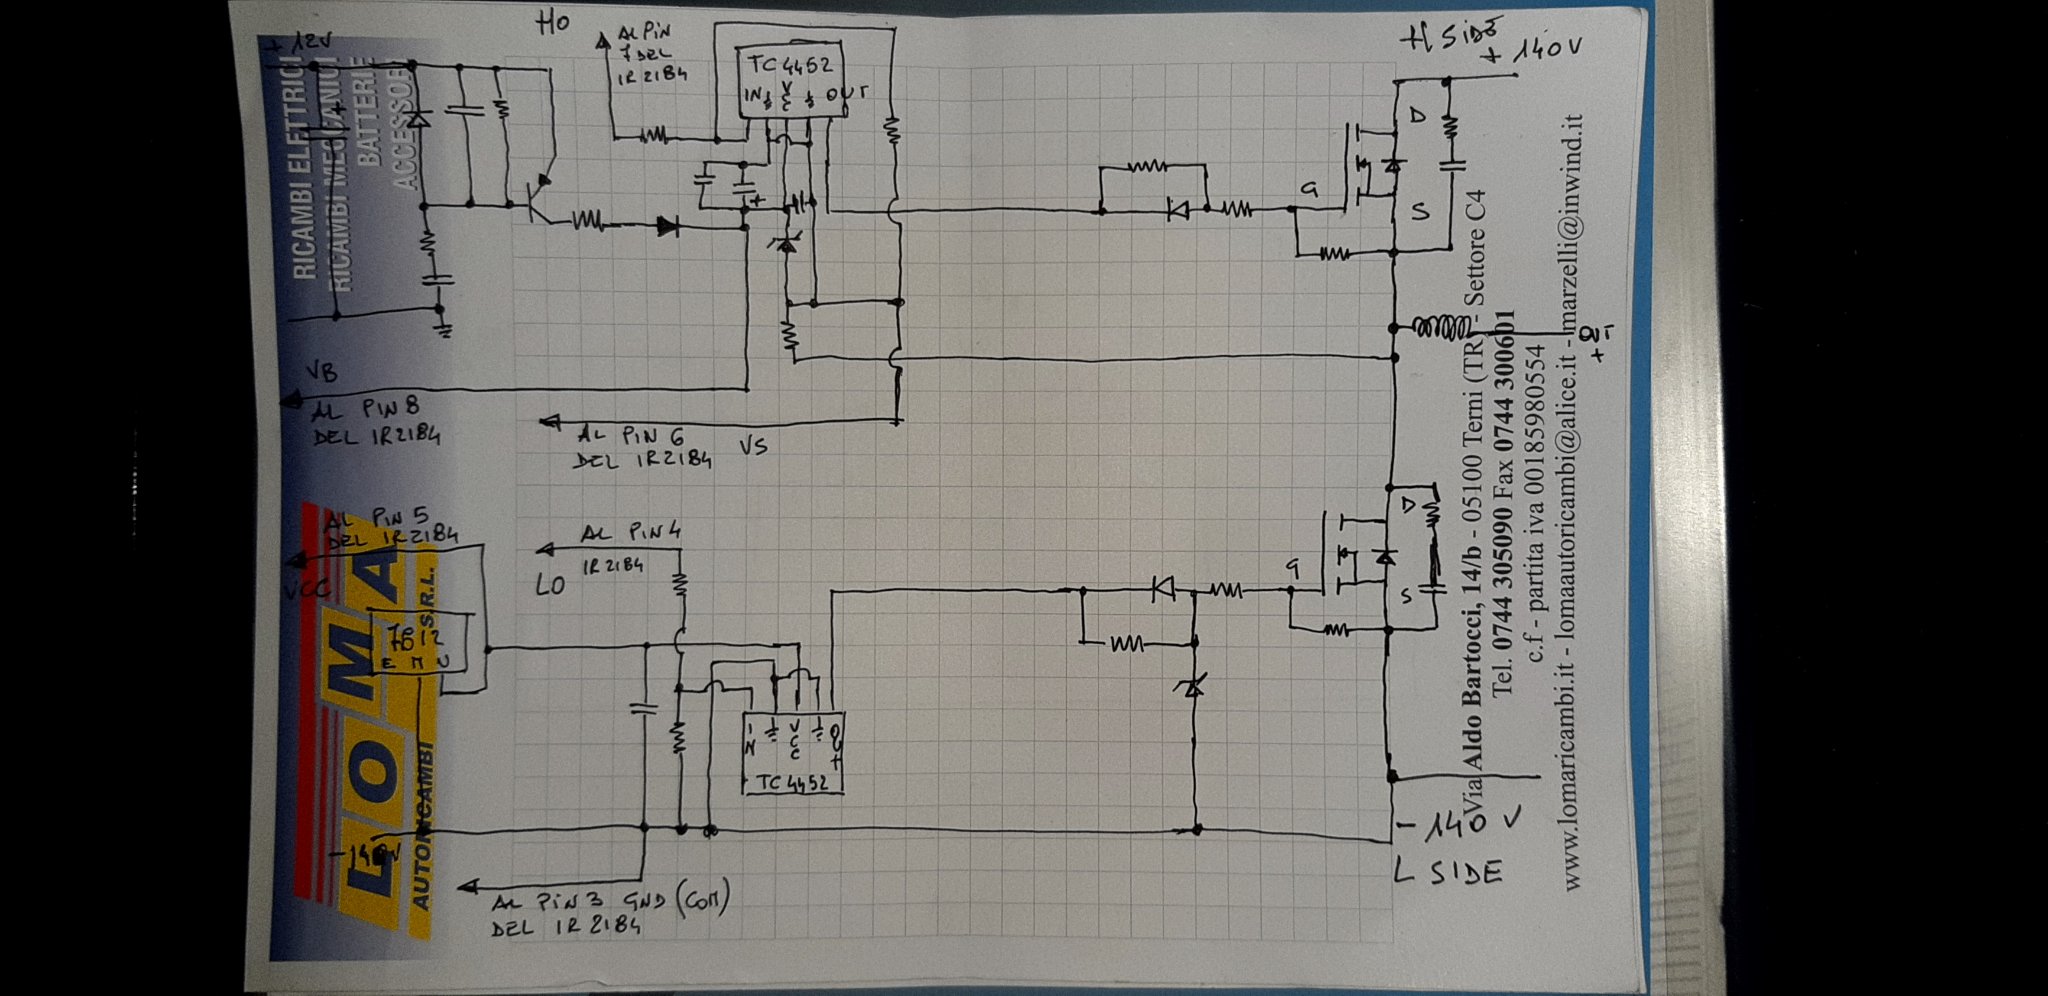 + 12V
HO
AL PIN
7 DEL
IR2184
TC4452
IN
VCC
OUT
H SIDE
+ 140V
D
G
S
OUT
+
VB
AL PIN 8
DEL IR2184
AL PIN 6
DEL IR2184
VS
AL PIN 5
DEL IR2184
VCC
AL PIN 4
IR2184
LO
7812
E M U
IN
VCC
OUT
TC4452
D
G
S
-140V
- 140 V
L SIDE
AL PIN 3 GND (COM)
DEL IR2184
RICAMBI ELETTRICI
RICAMBI MECCANICI
BATTERIE
ACCESSORI
LOMA
S.R.L.
AUTORICAMBI
Via Aldo Bartocci, 14/b - 05100 Terni (TR) - Settore C4
Tel. 0744 305090 Fax 0744 300601
c.f - partita iva 00185980554
www.lomaricambi.it - lomaautoricambi@alice.it - marzelli@inwind.it